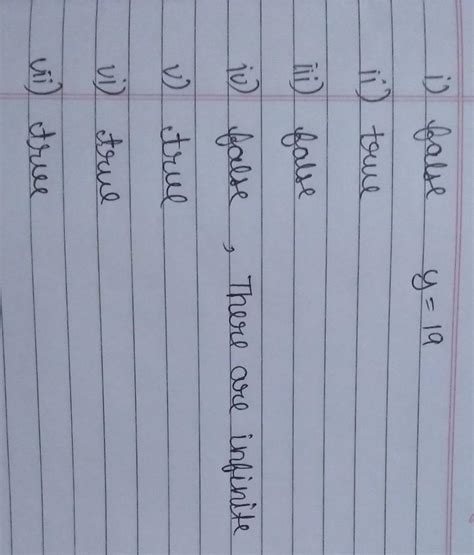 i) false y = 19
ii) true
iii) false
iv) false, There are infinite
v) true
vi) true
vii) true